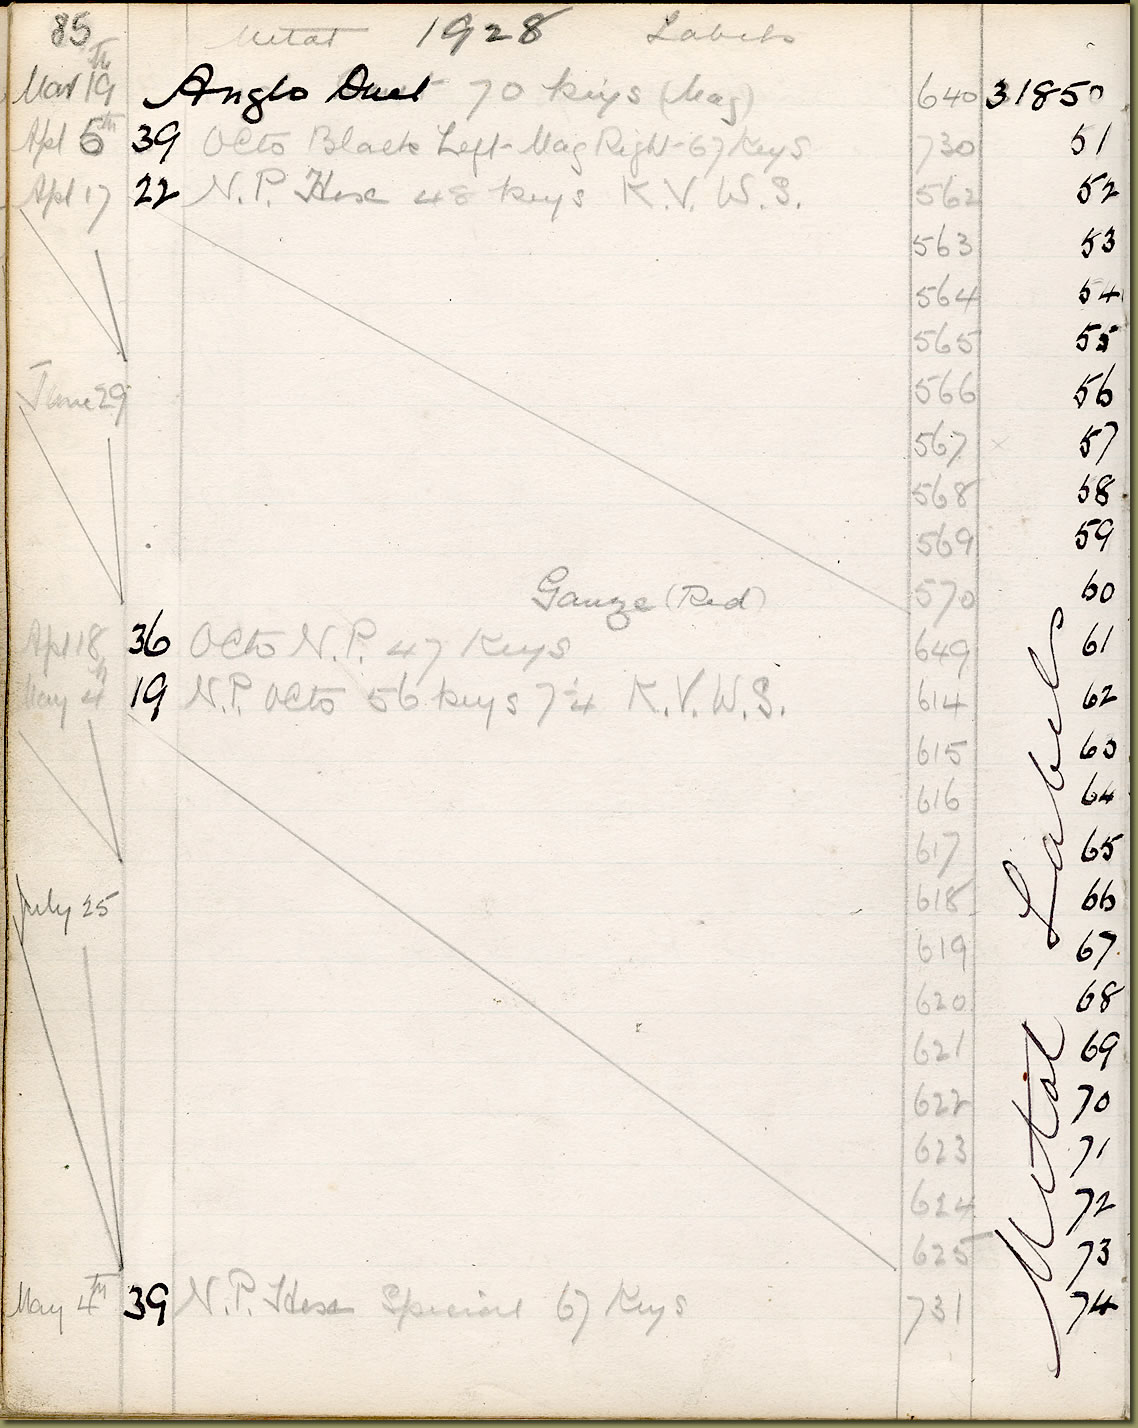 85 Metal 1928 Labels
Mar 19th Anglo Duet 70 Keys (Mag) 640 31850
Apl 5th 39 Octo Black Left-Mag Right-67 Keys 730 51
Apl 17 22 N.P. Hex 48 keys K.V. W.S. 562 52
563 53
564 54
565 55
June 29 566 56
567 57
568 58
569 59
Gauze (Red) 570 60
Apl 18 36 Octo N.P. 47 Keys 649 61
May 4th 19 N.P. Octo 56 keys 7¼ K.V. W.S. 614 62
615 63
616 64
617 65
July 25 618 66
619 67
620 68
621 69
622 70
623 71
624 72
625 73
May 4th 39 N.P. Hex Special 67 Keys 731 74
Metal Labels